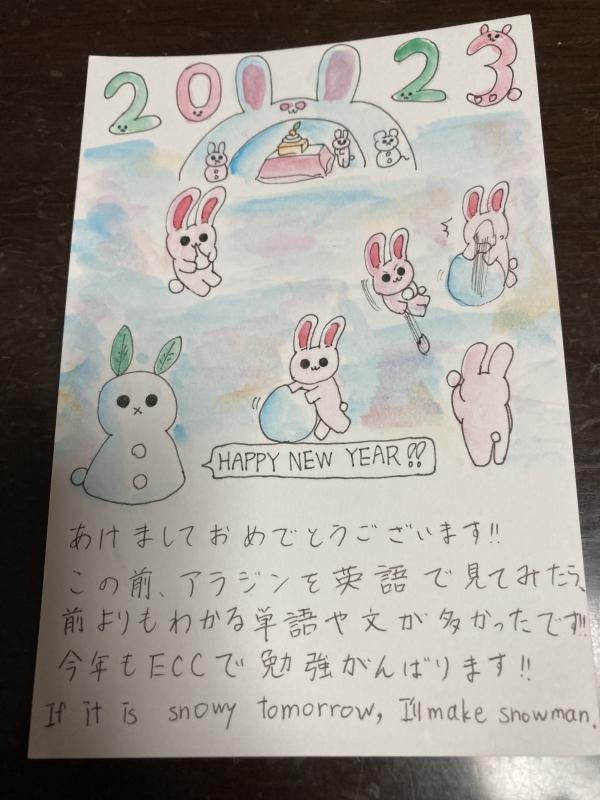 2023
HAPPY NEW YEAR!!
あけましておめでとうございます!!
この前、アラジンを英語で見てみたら、
前よりもわかる単語や文が多かったです!!
今年もECCで勉強がんばります!!
If it is snowy tomorrow, I'll make snowman.